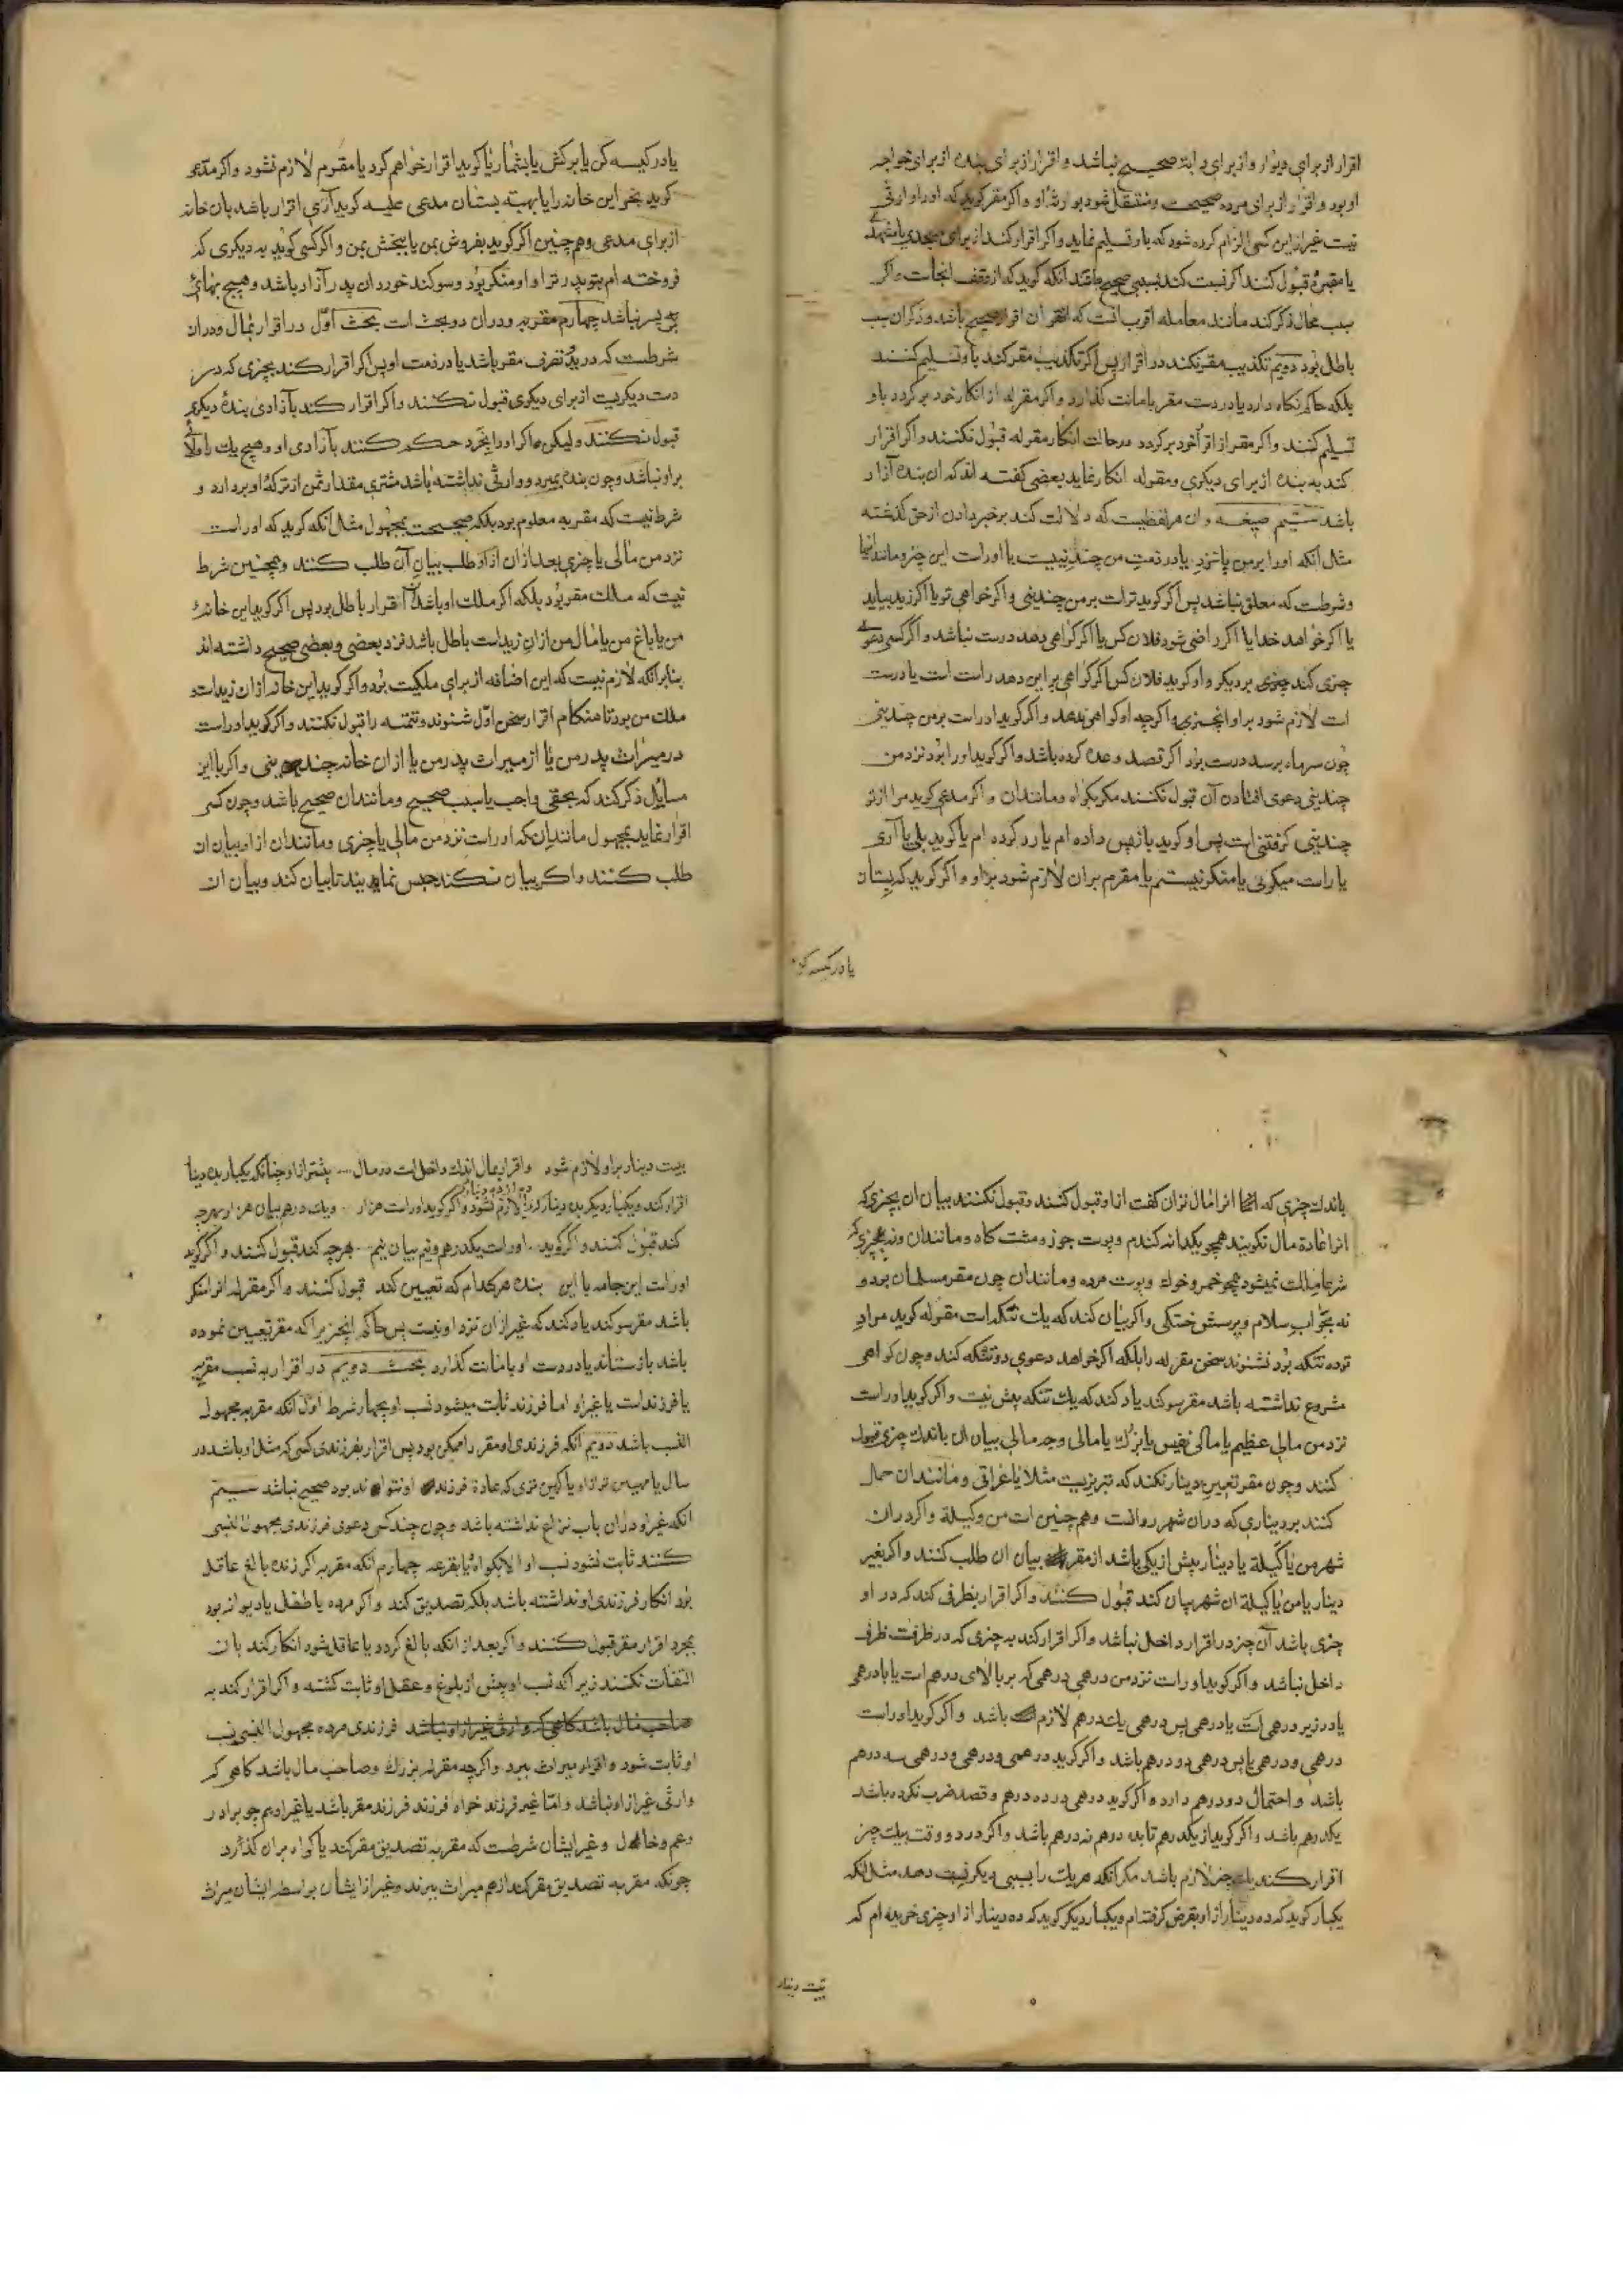 اقرار از برای دیوار و از برای دابة صحیح نباشد و اقرار از برای بنده از برای خواجه
او بود و اقرار از برای مرده صحیحست و منتقل شود بوارث او و اکر مقر کوید که او را وارثی
نیست غیر از این کس الزام کرده شود که باو تسلیم نماید و اکر اقرار کند از برای مسجدی یا مشهدی
یا مقبرۀ قبول کنند اکر نسبت کند بسببی صحیح باشد آنکه کوید که از وقف انجاست و اکر
سبب محال ذکر کند مانند معامله اقرب انست که ان اقرار صحیح باشد و ذکر ان سبب
باطل بود دویم تکذیب مقر نکند در اقرار پس اکر تکذیب مقر کند باو تسلیم نکنند
بلکه حاکم نکاه دارد یا در دست مقر بامانت کذارد و اکر مقر له از انکار خود بر کردد باو
تسلیم کنند و اکر مقر از اقرار خود بر کردد در حالت انکار مقر له قبول نکنند و اکر اقرار
کند به بنده از برای دیکری و مقر له انکار نماید بعضی کفته اند که ان بنده آزار
باشد سیّیم صیغه و ان هر لفظیست که دلالت کند بر خبر دادن از حق کذشته
مثل آنکه او را بر من یا نزد یا در ذمت من چندینیست یا او راست این چیز و مانند اینها
و شرطست که معلق نباشد پس اکر کوید تراست بر من چندینی و اکر خواهی تو یا اکر زید بیاید
یا اکر خواهد خدا یا اکر راضی شود فلان کس یا اکر کواهی دهد درست نباشد و اکر کسی دعوی
چیزی کند بر دیکر و او کوید فلان کس اکر کواهی بر این دهد راست است یا درست
است لازم شود بر او انچیزی و اکر چه او کواهی ندهد و اکر کوید او راست بر من چندینی
چون سر ماه برسد درست بود اکر قصد وعده کرده باشد و اکر کوید او را بود نزد من
چندینی دعوی افتادن آن قبول نکنند مکر بکواه و مانند ان و اکر مدعی کوید مرا از تو
چندینی کرفتنی است پس او کوید باز پس داده ام یا رد کرده ام یا کوید بلی یا آری
یا راست میکوئی یا منکر نیستم یا مقرم بران لازم شود بر او و اکر کوید که بستان
یا در کیسه کن
یا در کیسه کن یا بر کش یا بشمار یا کوید اقرار خواهم کرد یا مقرم لازم نشود و اکر مدعی
کوید بخر این خانه را یا بهبه بستان مدعی علیه کوید آری اقرار باشد بان خانه
از برای مدعی و هم چنین اکر کوید بفروش بمن یا ببخش بمن و اکر کسی کوید به دیکری که
فروخته ام بتو پدر ترا و او منکر بود و سوکند خورد ان پدر آزاد باشد و هیچ بهائی
بر پسر نباشد چهارم مقر به و در ان دو بحث است بحث اوّل در اقرار بمال و در ان
شرطست که در ید تصرف مقر باشد یا در ذمت او پس اکر اقرار کند بچیزی که در
دست دیکریست از برای دیکری قبول نکنند و اکر اقرار کند بآزادی بندۀ دیکری
قبول نکنند و لیکن اکر او را بخرد حکم کنند بآزادی او و هیچ یك را ولائی
بر او نباشد و چون بنده بمیرد و وارثی نداشته باشد مشتری مقدار ثمن از ترکۀ او بر دارد و
شرط نیست که مقر به معلوم بود بلکه صحیحست بمجهول مثل آنکه کوید که او راست
نزد من مالی یا چیزی بعد از ان از او طلب بیان آن طلب کنند و همچنین شرط
نیست که ملك مقر بود بلکه اکر ملك او باشد اقرار باطل بود پس اکر کوید این خانۀ
من یا باغ من یا مال من از ان زیداست باطل باشد نزد بعضی و بعضی صحیح داشته اند
بنابر آنکه لازم نیست که این اضافه از برای ملکیت بود و اکر کوید این خانه از ان زیداست و
ملك من بود تا هنکام اقرار سخن اوّل شنوند و تتمه را قبول نکنند و اکر کوید او راست
در میراث پدر من یا از میراث پدر من یا از ان خانه چندینی و اکر با این
مسایل ذکر کند که بحقی واجب یا سبب صحیح و مانند ان صحیح باشد و چون کسی
اقرار نماید بمجهول مانند آنکه او راست نزد من مالی یا چیزی و مانند ان از او بیان ان
طلب کنند و اکر بیان نکند حبس نمایند تا بیان کند و بیان ان
باندك چیزی که انرا مال توان کفت از او قبول کنند و قبول نکنند بیان ان بچیزی که
انرا عادة مال نکویند همچو یکدانه کندم و پوست جوز و مشت کاه و مانند ان و نه بچیزی که
شرعا ملك نمیشود همچو خمر و خوك و پوست مرده و مانند ان چون مقر مسلمان بود و
نه بجواب سلام و پرسش خستکی و اکر بیان کند که یك تنکه است مقر له کوید مراد
تو ده تنکه بود نشنوند سخن مقر له را بلکه اکر خواهد دعوی ده تنکه کند و چون کواهی
مشروع نداشته باشد مقر سوکند یاد کند که یك تنکه بیش نیست و اکر کوید او راست
نزد من مالی عظیم یا مالی نفیس یا بزرك یا مالی و چه مالی بیان ان باندك چیزی قبول
کنند و چون مقر تعیین دینار نکند که تبریزیست مثلا یا عراقی و مانند ان حمل
کنند بر دیناری که در ان شهر رواست و هم چنین است من و کیله و اکر در ان
شهر من یا کیله یا دینار بیش از یکی باشد از مقر بیان ان طلب کنند و اکر بغیر
دینار یا من یا کیلۀ ان شهر بیان کند قبول کنند و اکر اقرار بظرفی کند که در او
چیزی باشد آن چیز در اقرار داخل نباشد و اکر اقرار کند به چیزی که در ظرفست ظرف
داخل نباشد و اکر کوید او راست نزد من درهمی درهمی که بر بالای درهم است یا با درهمی
یا در زیر درهمی است یا درهمی پس درهمی یك درهم لازم باشد و اکر کوید او راست
درهمی و درهمی یا پس درهمی دو درهم باشد و اکر کوید درهمی و درهمی و درهمی سه درهم
باشد و احتمال دو درهم دارد و اکر کوید درهمی در ده درهم و قصد ضرب نکرده باشد
یکدرهم باشد و اکر کوید از یکدرهم تا ده درهم نه درهم باشد و اکر در دو وقت بیك چیز
اقرار کند یك چیز لازم باشد مکر آنکه هر یك را بسببی دیکر نسبت دهد مثل آنکه
یکبار کوید که ده دینار از او بقرض کرفته ام و یکبار دیکر کوید که ده دینار از او چیزی خریده ام که
بیست دینار
بیست دینار بر او لازم شود و اقرار بمال اندك داخل است در مال بیشتر از او چنانکه یکبار بده دینار
اقرار کند و یکبار دیکر بده دینار لازم نشود و اکر کوید او راست هزار و یك درهم بیان هزار بهر چه
کند قبول کنند و اکر کوید او راست یکدرهم و نیم بیان نیم بهر چه کند قبول کنند و اکر کوید
او راست این جامه یا این بنده هر کدام که تعیین کند قبول کنند و اکر مقر له انرا منکر
باشد مقر سوکند یاد کند که غیر از ان نزد او نیست پس حاکم انچیز را که مقر تعیین نموده
باشد باز ستاند یا در دست او بامانت کذارد بحث دویم در اقرار به نسب مقر به
یا فرزند است یا غیر او اما فرزند ثابت میشود نسب او بچهار شرط اوّل آنکه مقر به مجهول
النسب باشد دویم آنکه فرزندی او مقر را ممکن بود پس اقرار بفرزندی کسی که مثل او باشد در
سال یا مهین تر از او یا کهین تری که عادة فرزند او نتواند بود صحیح نباشد سیّم
آنکه غیر او در ان باب نزاع نداشته باشد و چون چند کس دعوی فرزندی مجهول النسبی
کنند ثابت نشود نسب او الا بکواه یا بقرعه چهارم آنکه مقر به اکر زنده بالغ عاقل
بود انکار فرزندی او نداشته باشد بلکه تصدیق کند و اکر مرده یا طفل یا دیوانه بود
بمجرد اقرار مقر قبول کنند و اکر بعد از آنکه بالغ کردد یا عاقل شود انکار کند بان
التفات نکنند زیرا که نسب او پیش از بلوغ و عقل او ثابت کشته و اکر اقرار کند به
صاحب مال باشد کاهی که وارثی غیر از او نباشد فرزندی مرده مجهول النسبی نسب
او ثابت شود و اقرار میراث ببرد و اکر چه مقر له بزرك و صاحب مال باشد کاهی که
وارثی غیر از او نباشد و امّا غیر فرزند خواه فرزند فرزند مقر باشد یا غیر او همچو برادر
و عم و خال و غیر ایشان شرطست که مقر به تصدیق مقر کند یا کواه بران کذارد
چونکه مقر به تصدیق مقر کند از هم میراث ببرند و غیر از ایشان بواسطۀ ایشان میراث